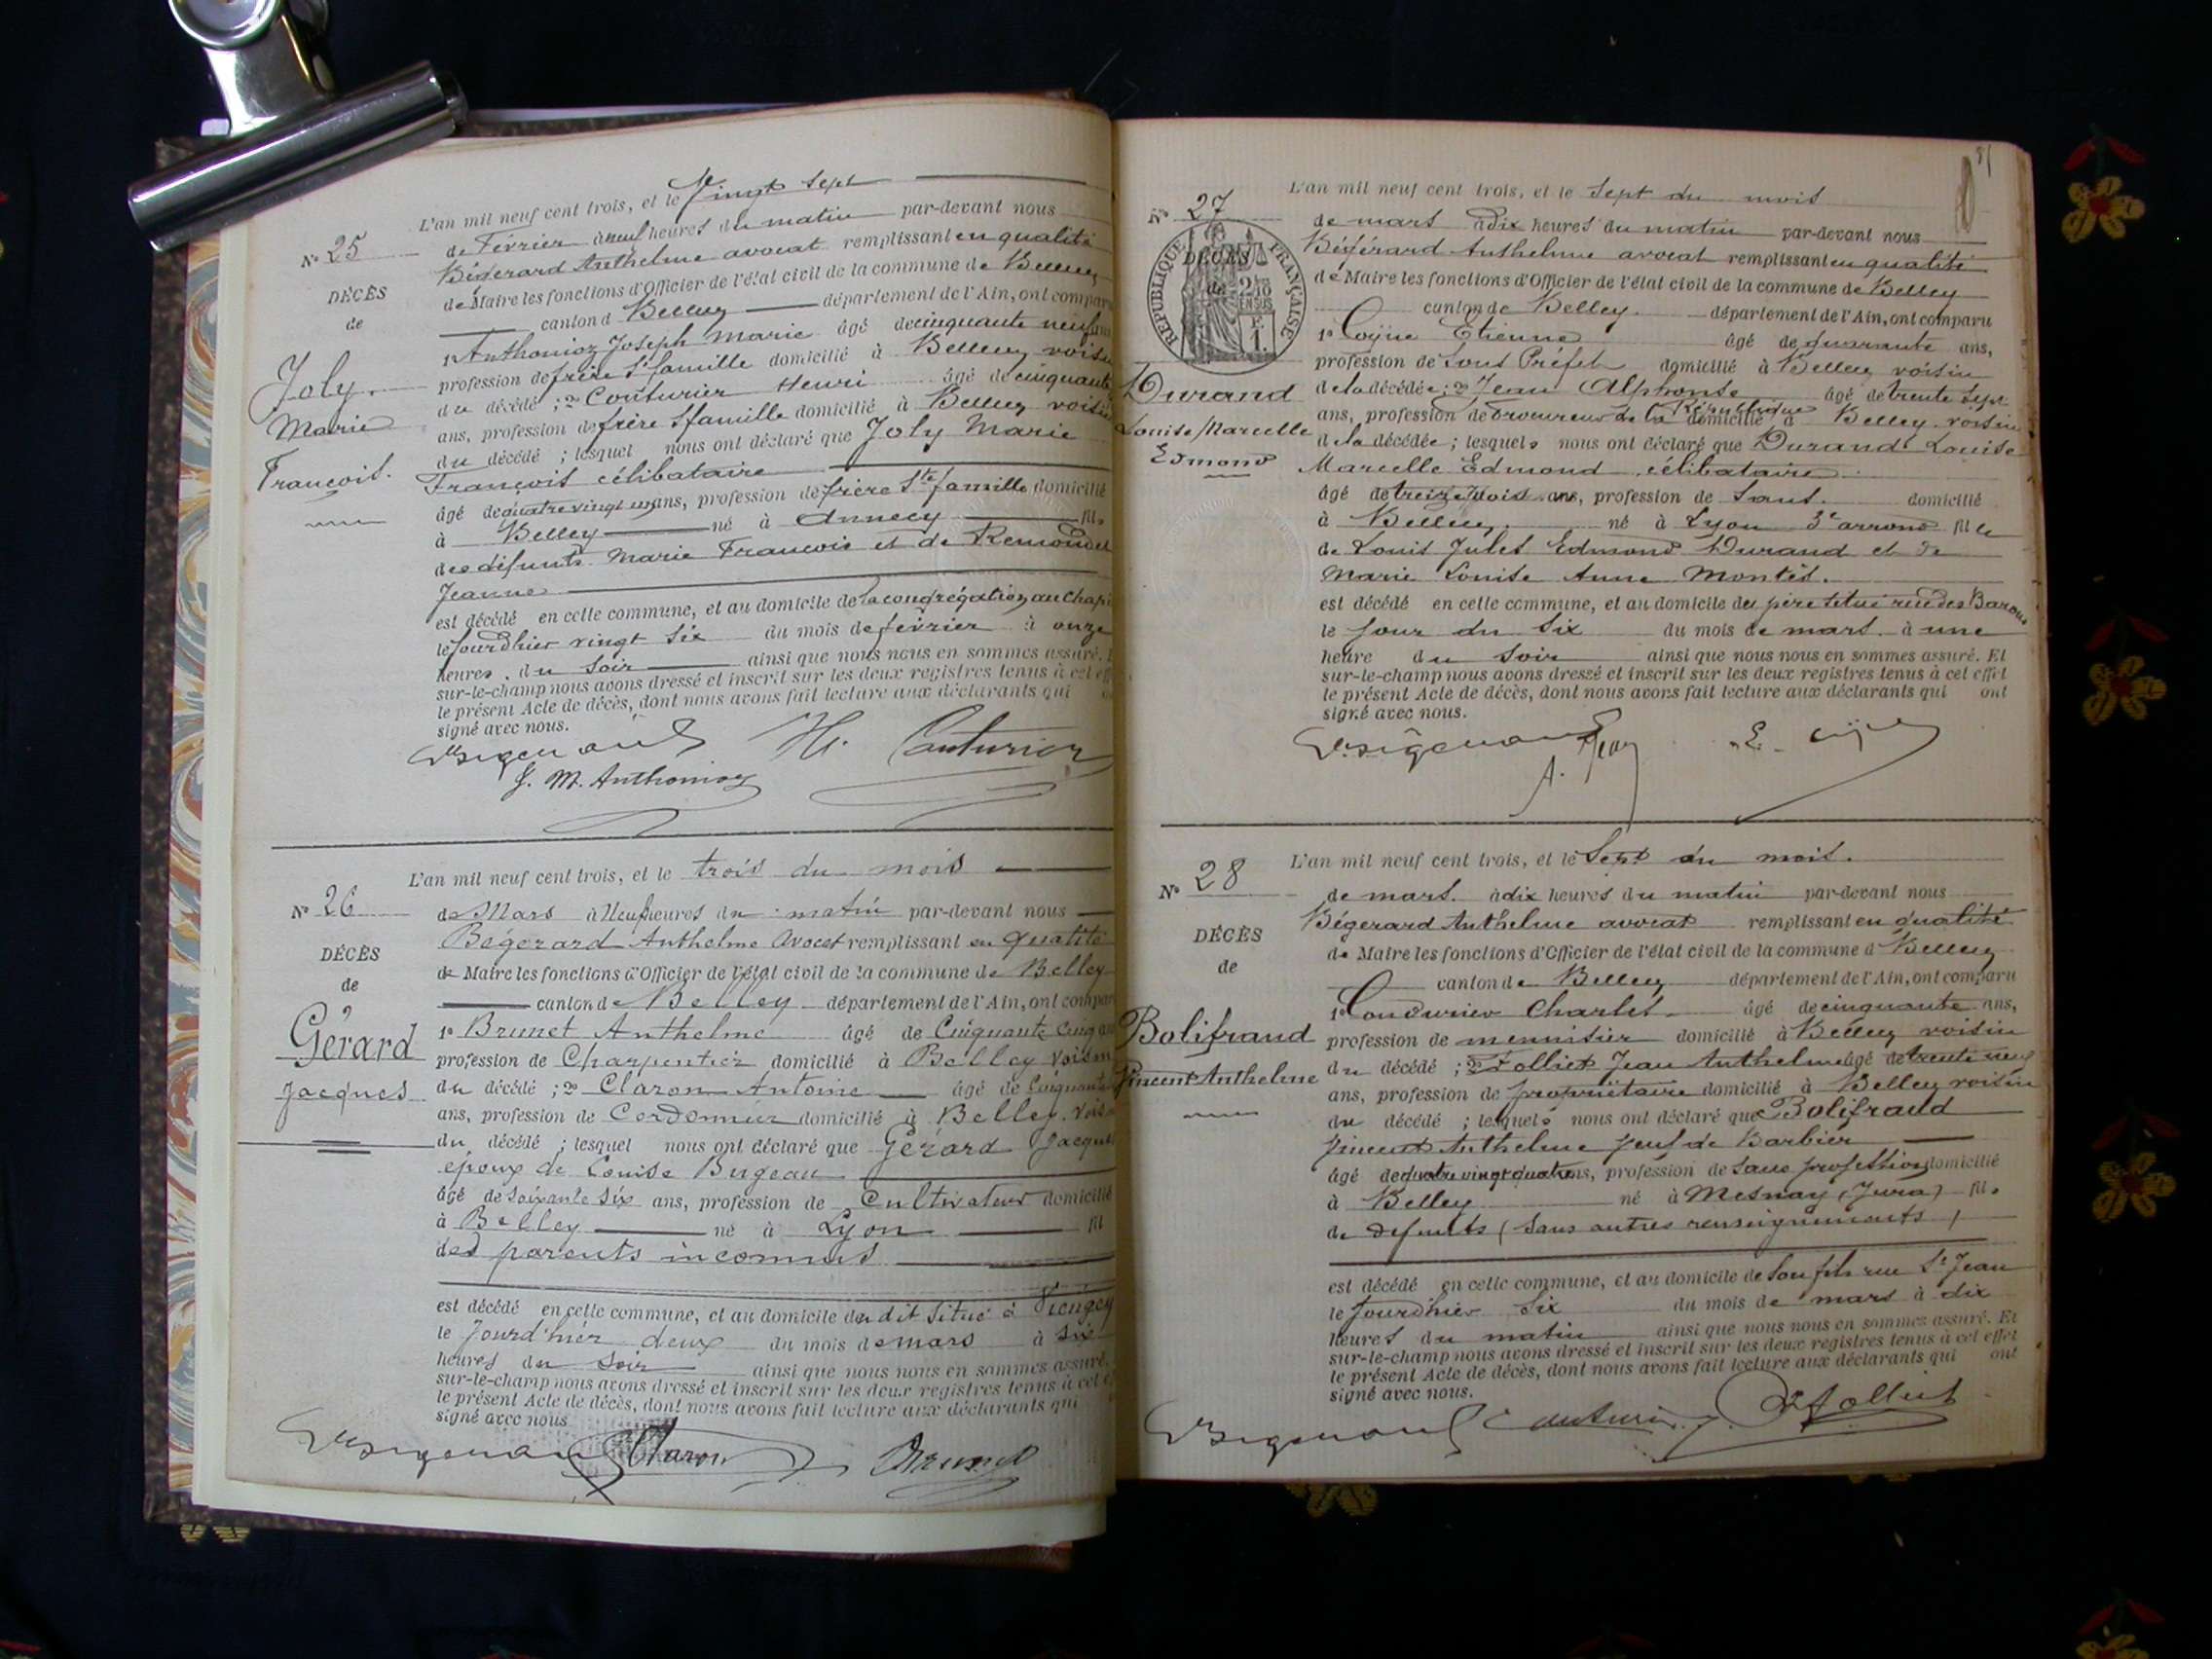 L'an mil neuf cent trois, et le Vingt sept
N° 25
de Février à neuf heures du matin par-devant nous
Bégerard Anthelme avocat remplissant en qualité
DÉCÈS
de Maire les fonctions d'Officier de l'état civil de la commune de Belley
de
canton d Belley département de l'Ain, ont compar
1° Anthonioz Joseph Marie âgé de cinquante neuf ans
Joly
profession de frère Ste famille domicilié à Belley voisin
du décédé ; 2° Couturier Henri âgé de cinquante
Marie
ans, profession de frère Ste famille domicilié à Belley voisin
du décédé ; lesquel nous ont déclaré que Joly Marie
François.
François célibataire
âgé de quatre vingt un ans, profession de frère Ste famille domicilié
à Belley né à Annecy fils
des défunts Marie François et de Remondet
Jeanne
est décédé en cette commune, et au domicile de la congrégation au Chapi
le jourdhier vingt six du mois de février à onze
heures du soir ainsi que nous nous en sommes assuré. E
sur-le-champ nous avons dressé et inscrit sur les deux registres tenus à cet eff
le présent Acte de décès, dont nous avons fait lecture aux déclarants qui
signé avec nous.
H. Couturier
J. M. Anthonioz
L'an mil neuf cent trois, et le trois du mois
N° 26
de Mars à Neuf heures du matin par-devant nous
Bégerard Anthelme Avocat remplissant en qualité
DÉCÈS
de Maire les fonctions d'Officier de l'état civil de la commune de Belley
de
canton de Belley département de l'Ain, ont compar
1° Brunet Anthelme âgé de Cinquante cinq ans
Gérard
profession de Charpentier domicilié à Belley voisin
Jacques
du décédé ; 2° Claron Antoine âgé de Cinquante
ans, profession de Cordonnier domicilié à Belley. voisin
du décédé ; lesquel nous ont déclaré que Gérard Jacques
époux de Louise Bugeau
âgé de soixante six ans, profession de Cultivateur domicilié
à Belley né à Lyon fil
des parents inconnus
est décédé en cette commune, et au domicile du dit situé à
le Jourd'hier deux du mois de mars à six
heures du soir ainsi que nous nous en sommes assuré.
sur-le-champ nous avons dressé et inscrit sur les deux registres tenus à cet e
le présent Acte de décès, dont nous avons fait lecture aux déclarants qui
signé avec nous
Claron Brunet
L'an mil neuf cent trois, et le sept du mois
N° 27
de mars à dix heures du matin par-devant nous
RÉPUBLIQUE FRANÇAISE
DÉCÈS
de
Bégérard Anthelme avocat remplissant en qualité
de Maire les fonctions d'Officier de l'état civil de la commune de Belley
canton de Belley. département de l'Ain, ont comparu
1° Coÿne Etienne âgé de quarante ans,
profession de Sous Préfet domicilié à Belley voisin
Durand
de la décédée ; 2° Jean Alphonse âgé de trente sept
Louise Marcelle
ans, profession de Procureur de la République domicilié à Belley voisin
de la décédée ; lesquels nous ont déclaré que Durand Louise
Edmond
Marcelle Edmond célibataire
âgé de treize mois ans, profession de Sans. domicilié
à Belley né à Lyon 3e arrond fille
de Louis Jules Edmond Durand et de
Marie Louise Anne Montès.
est décédé en cette commune, et au domicile des père situé rue des Barons
le jour du six du mois de mars à une
heure du soir ainsi que nous nous en sommes assuré. Et
sur-le-champ nous avons dressé et inscrit sur les deux registres tenus à cet effet
le présent Acte de décès, dont nous avons fait lecture aux déclarants qui ont
signé avec nous.
A. Jean
L'an mil neuf cent trois, et le Sept du mois.
N° 28
de mars. à dix heures du matin par-devant nous
Bégerard Anthelme avocat remplissant en qualité
DÉCÈS
de Maire les fonctions d'Officier de l'état civil de la commune d Belley
de
canton de Belley département de l'Ain, ont comparu
1° Couturier Charles âgé de cinquante ans,
Bolifraud
profession de menuisier domicilié à Belley voisin
du décédé ; 2° Folliet Jean Anthelme âgé de trente neuf
Vincent Anthelme
ans, profession de propriétaire domicilié à Belley voisin
du décédé ; lesquels nous ont déclaré que Bolifraud
Vincent Anthelme veuf de Barbier
âgé de quatre vingt quatre ans, profession de sans profession domicilié
à Belley né à Mesnay (Jura) fils
de défunts (sans autres renseignements)
est décédé en cette commune, et au domicile de son fils rue St Jean
le jourdhier six du mois de mars à dix
heures du matin ainsi que nous nous en sommes assuré. Et
sur-le-champ nous avons dressé et inscrit sur les deux registres tenus à cet effet
le présent Acte de décès, dont nous avons fait lecture aux déclarants qui ont
signé avec nous.
Folliet